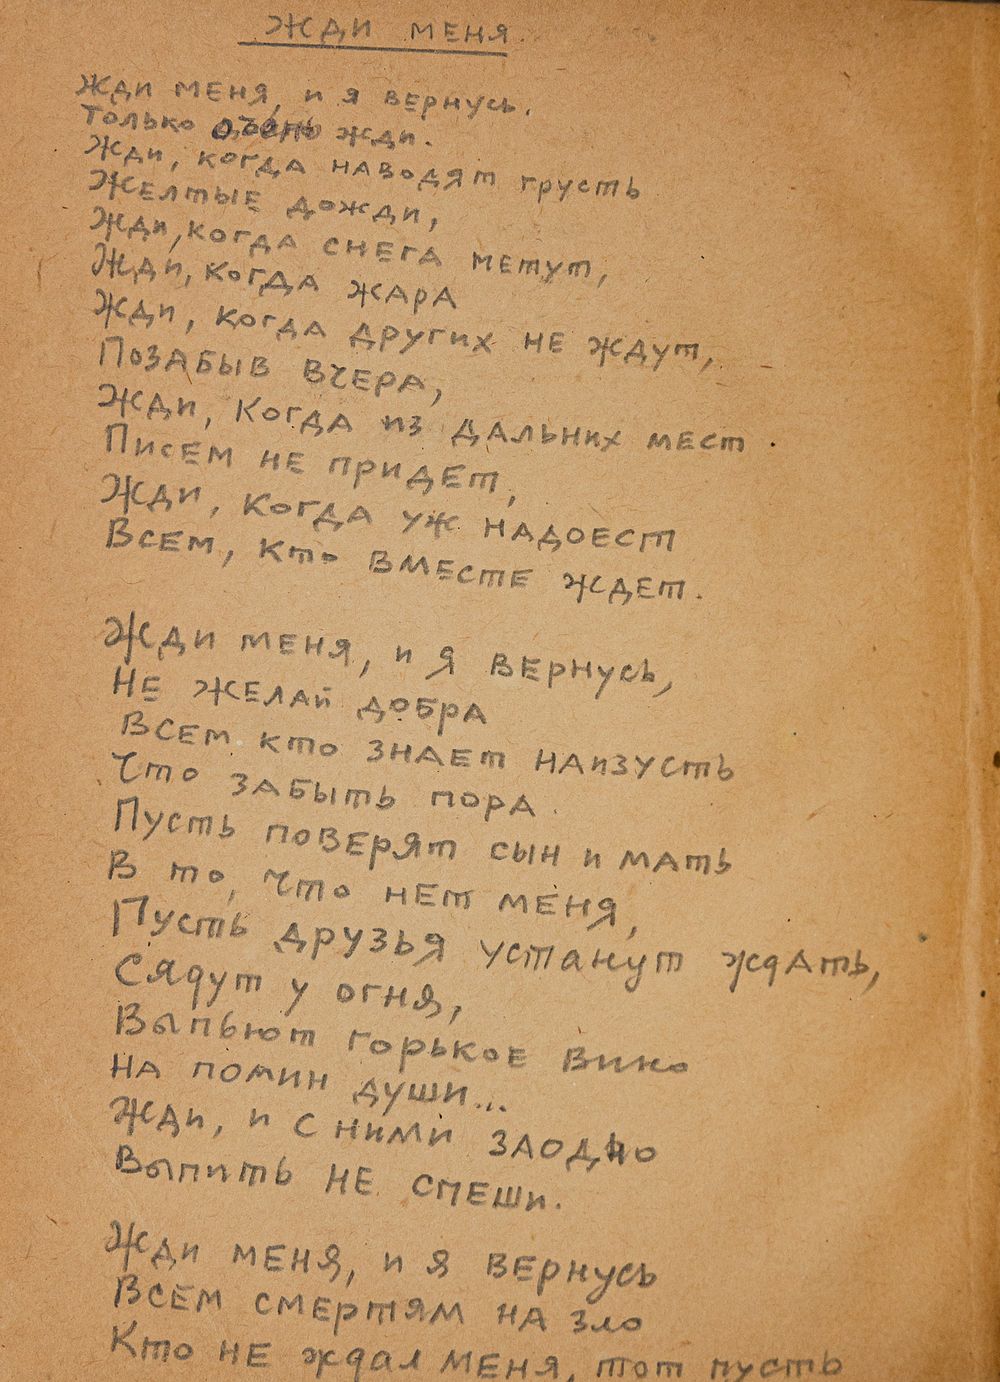 ЖДИ МЕНЯ.
Жди меня, и я вернусь.
Только очень жди.
Жди, когда наводят грусть
Желтые дожди,
Жди, когда снега метут,
Жди, когда жара
Жди, когда других не ждут,
Позабыв вчера,
Жди, когда из дальних мест
Писем не придет,
Жди, когда уж надоест
Всем, кто вместе ждет.
Жди меня, и я вернусь,
Не желай добра
Всем кто знает наизусть
Что забыть пора.
Пусть поверят сын и мать
В то, что нет меня,
Пусть друзья устанут ждать,
Сядут у огня,
Выпьют горькое вино
На помин души...
Жди, и с ними заодно
Выпить не спеши.
Жди меня, и я вернусь
Всем смертям на зло
Кто не ждал меня, тот пусть